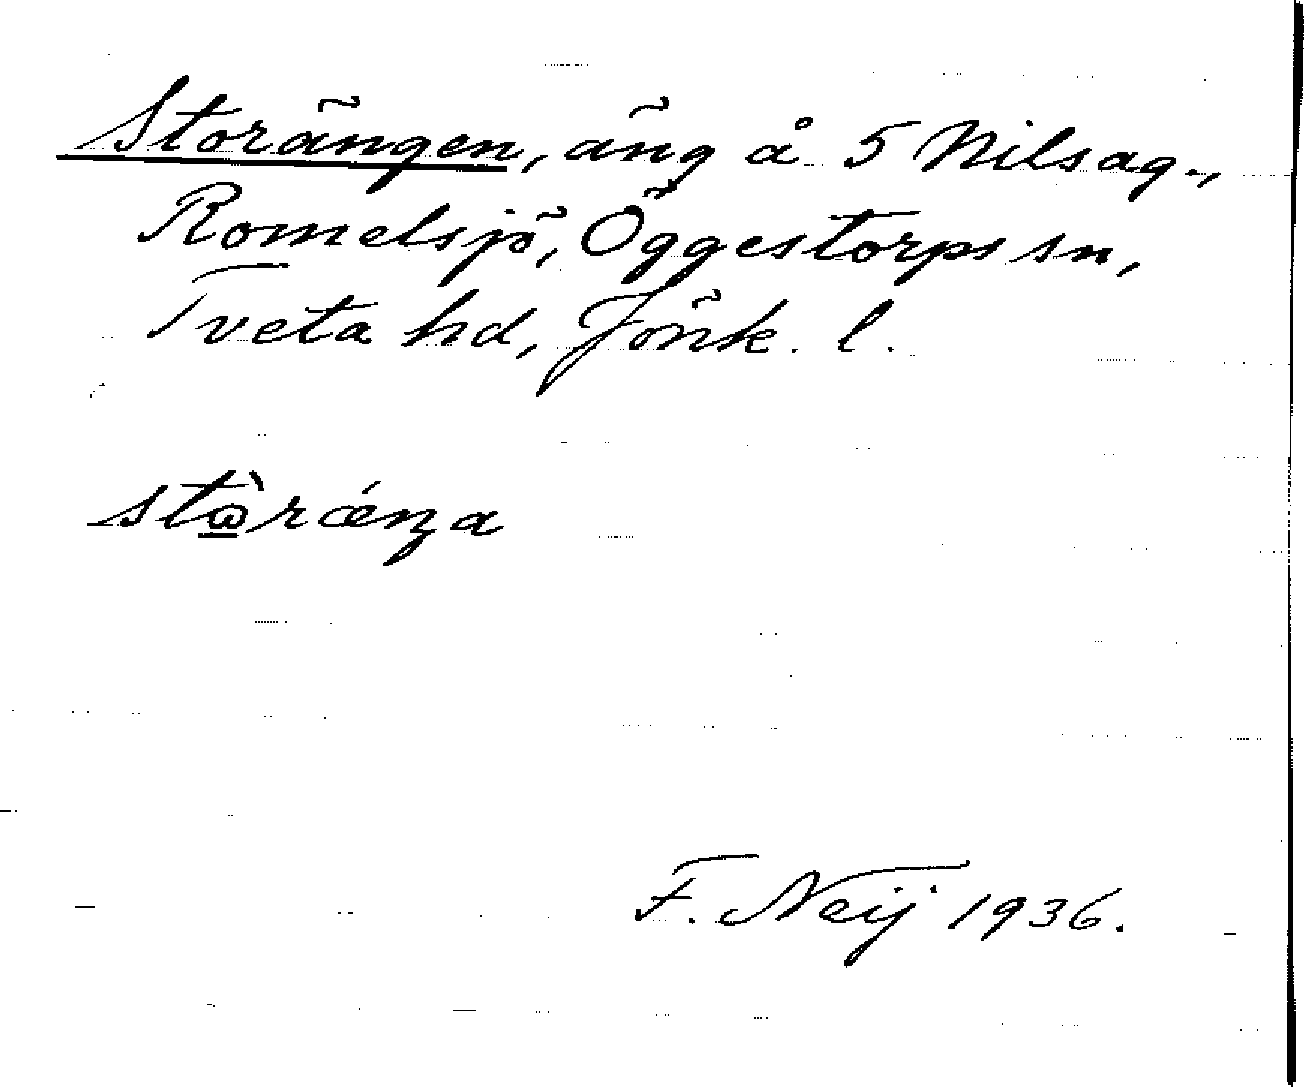 Storängen, äng å 5 Nilsag.,
Romelsjö, Öggestorps sn,
Tveta hd, Jönk. l.
F. Neij 1936.